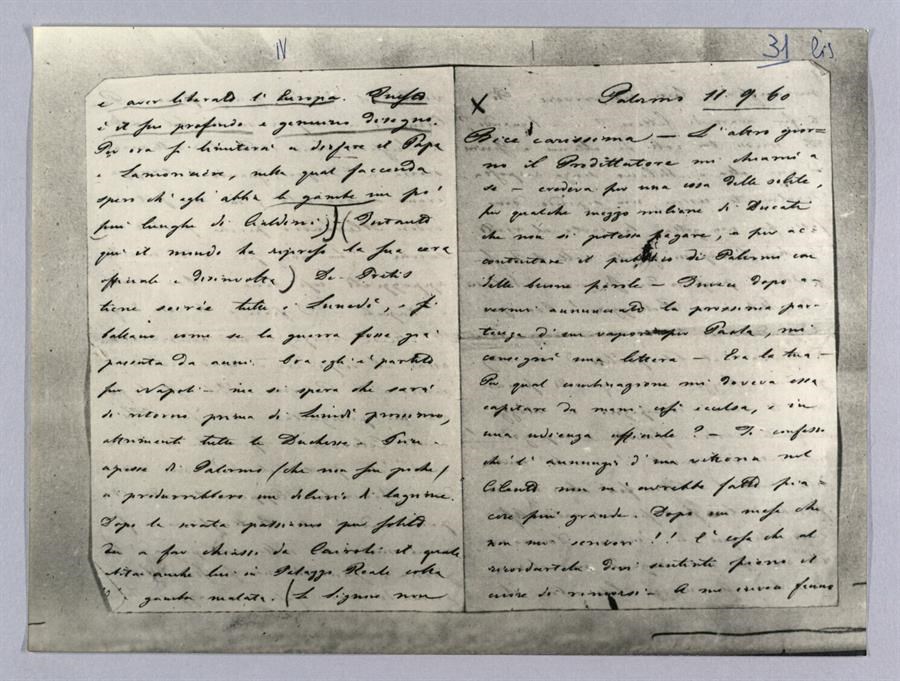 IV
31 bis
e aver liberato l'Europa. Questo
è il suo profondo e genuino disegno.
Per ora si limiterà a disfare il Papa
e Lamoricière, nella qual faccenda
spero ch'egli abbia le gambe un po'
più lunghe di Cialdini) (Intanto
qui il mondo ha ripreso la sua cera
officiale e disinvolta) De Pretis
tiene soirée tutti i Lunedì, e si
ballano come se la guerra fosse già
passata da anni. Ora egli è partito
per Napoli – ma si spera che sarà
di ritorno prima di Lunedì prossimo,
altrimenti tutte le Duchesse e
di Palermo (che non son poche)
si produrrebbero un diluvio di lagrime.
Dopo la serata passiamo per solito
da a far chiasso da Cairoli il quale
abita anche lui in Palazzo Reale colla
gamba malata. (Le Signore non
X
Palermo 11.9.60
Bice carissima – L'altro gior=
no il Prodittatore mi chiamò a
sé – credeva per una cosa delle solite,
per qualche mezzo milione di Ducati
che non si potesse pagare, e per ac=
contentare il pubblico di Palermo con
delle buone parole – Invece dopo a=
vermi annunciato la prossima par=
tenza d'un vapore per Paola, mi
consegnò una lettera – Era la tua –
Per qual combinazione mi doveva essa
capitare da mani così, e in
una udienza officiale? – Ti confesso
che l'annunzio d'una vittoria nel
Cilento non mi avrebbe fatto pia=
cere più grande. Dopo un mese che
non mi scrivevi!! È cosa che al
ricordartela devi sentirti pieno il
cuore di rimorsi – A me aveva fanno